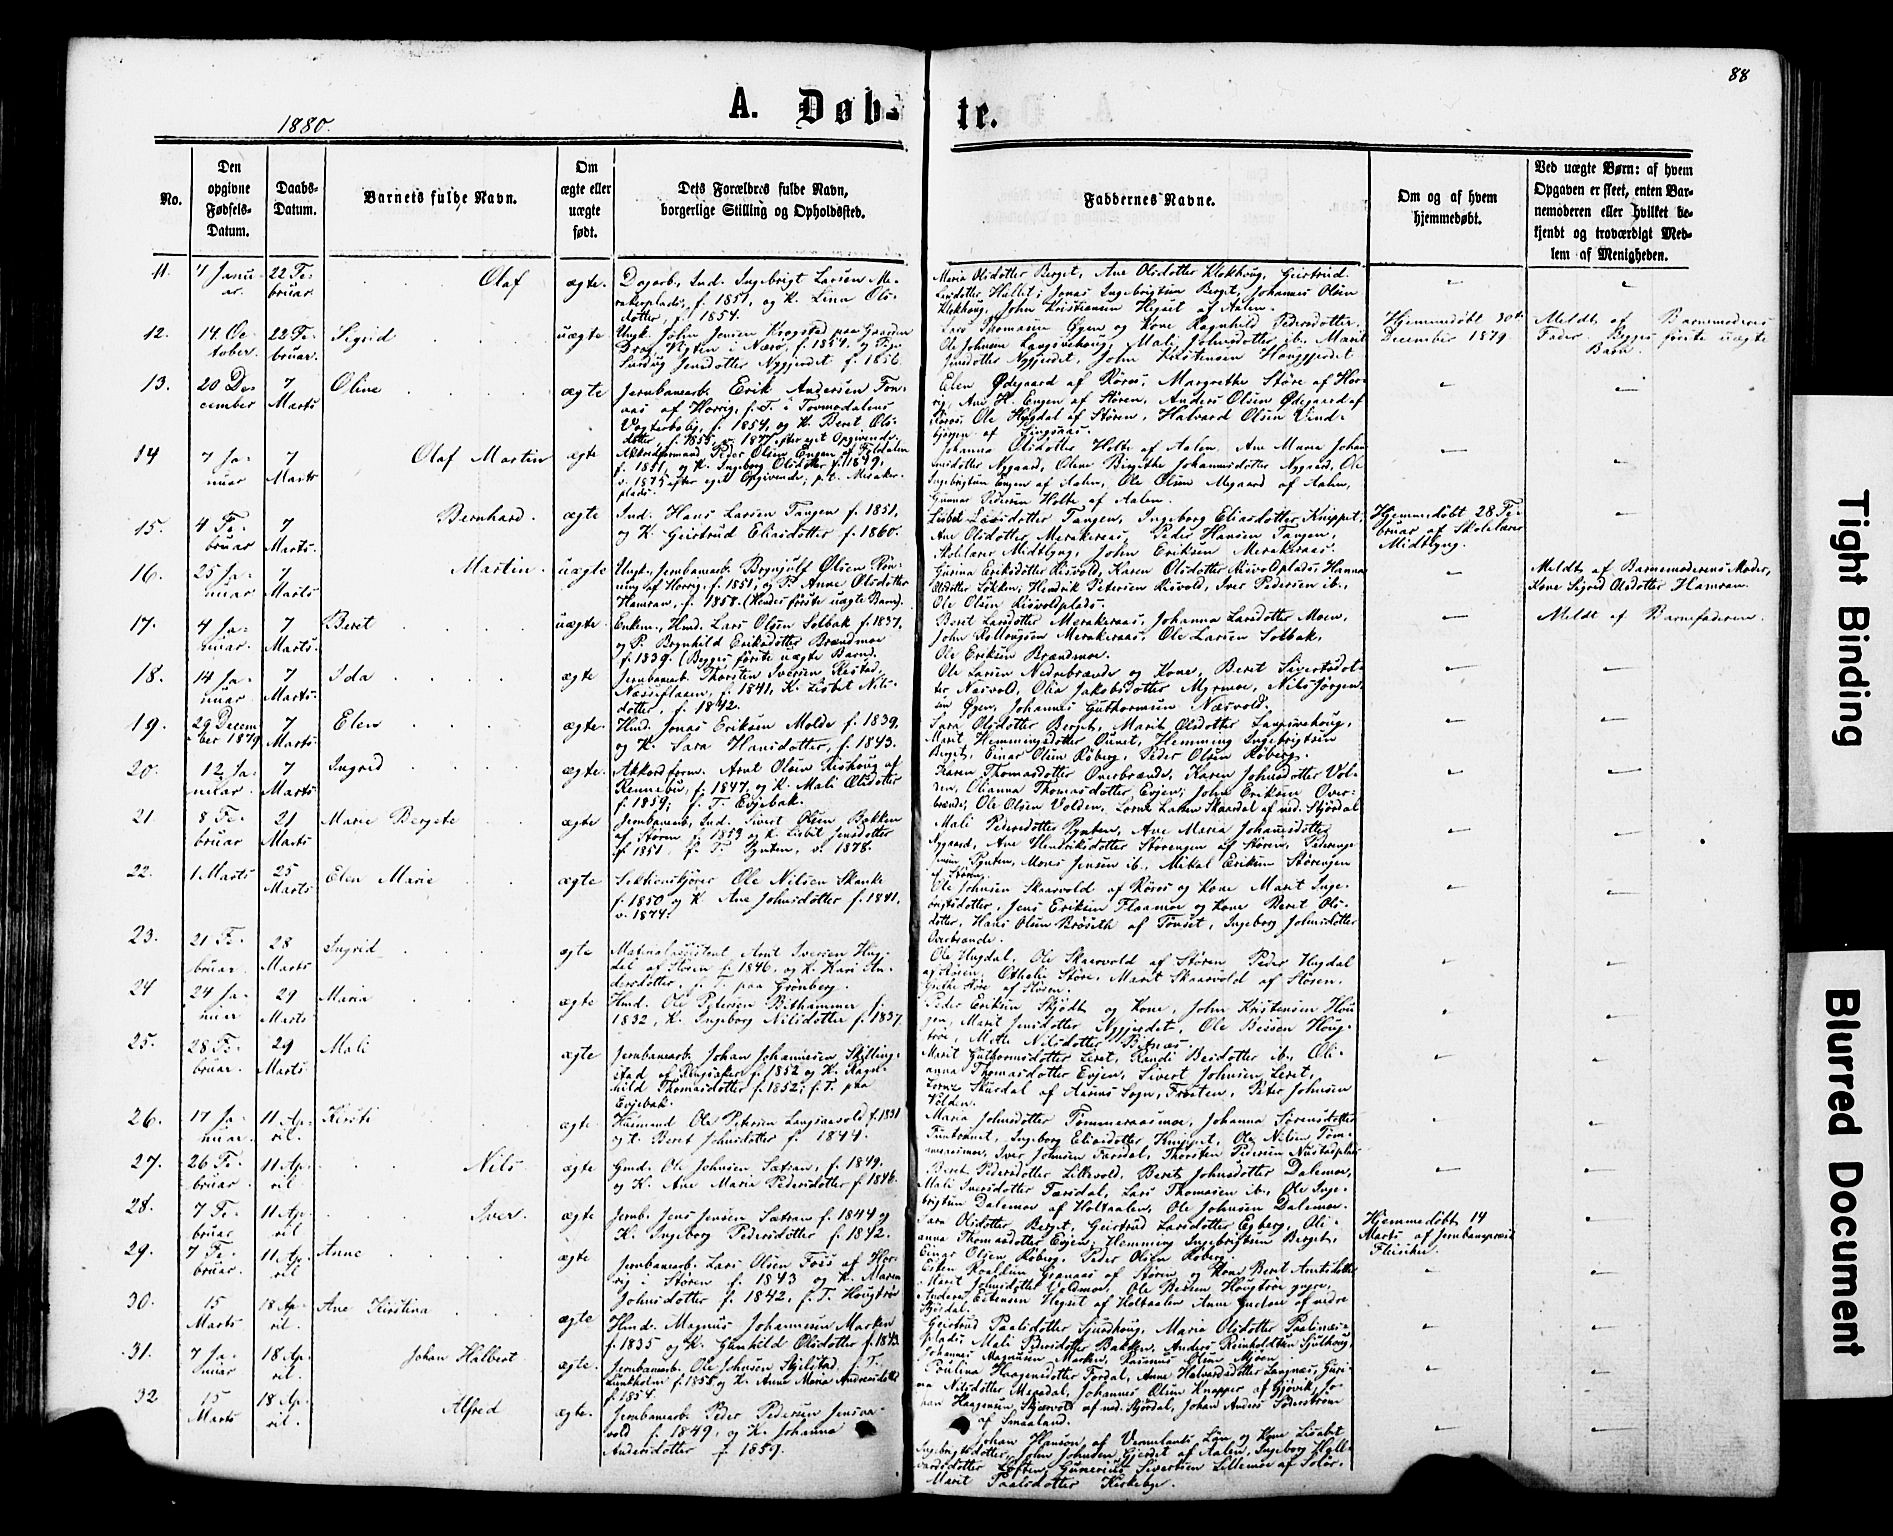 88
1880.
A. Døb-
te.
No.
Den opgivne Fødsels-Datum.
Daabs-Datum.
Barnets fulde Navn.
Om ægte eller uægte født.
Dets Forældres fulde Navn, borgerlige Stilling og Opholdssted.
Faddernes Navne.
Om og af hvem hjemmedøbt.
Ved uægte Børn: af hvem Opgaven er skeet, enten Barnemoderen eller hvilket bekjendt og troværdigt Medlem af Menigheden.
11. 7 Januar. 22 Februar. Olaf ægte. Dagarb. Ind. Ingebrigt Larsen Merakerplads, f. 1851, og K. Lina Olsdotter, f. 1854.
Maria Olsdotter Berget, Ane Olsdotter Klokhoug, Geirtrud
Larsdotter Hallset, Jonas Ingebrigtsen Berget, Johannes Olsen
Klokhoug, John Kristiansen Hegset af Aalen.
12. 14 October 22 Februar. Sigrid uægte Ungk. John Jensen Krogstad paa Gaarden
i Nærø, f. 1854, og Pige
Jensdotter Nygjerdet f. 1856
Lars Thomasen Øyen og Kone Ragnhild Pedersdotter.
Ole Johnsen Langsvehoug, Mali Johnsdotter ib., Marit
Jensdotter Nygjerdet, John Kristensen
Hjemmedøbt 30te December 1879.
Meldt af Barnemoderens Fader. Begges første uægte Barn.
13. 20 December 7 Marts Oline ægte Jernbanearb. Erik Andersen
af Horrig, f. T. i
Vogterbolig, f. 1854, og K. Beret Olsdotter, f. 1855, v. 1877 efter eget Opgivende
Elen Ødegaard af Røros, Margrethe Støre af Horrig, Ane H. Engen af Støren, Anders Olsen Ødegaard af
Røros, Ole Hugdal af Støren, Halvard Olsen
af Singsaas.
14 7 Januar 7 Marts Olaf Martin ægte Akkordformand Peder Olsen Engen af Tyldalen
f. 1851, og K. Ingeborg Olsdotter f. 1849.
v. 1875 efter eget Opgivende; p.t. Merakerplads.
Johanna Olsdotter Holte af Aalen, Ane Marie Johannesdotter Nygaard, Olene Birgithe Johannesdotter Nygaard, Ole
Ingebrigtsen Engen af Aalen, Ole Olsen Mogaard af Aalen,
Gunnar Pedersen Holte af Aalen.
15. 4 Februar 7 Marts. Bernhard. ægte Ind. Hans Larsen Tangen f. 1851,
og K. Geirtrud Eliasdotter f. 1860.
Lisbet Larsdotter Tangen, Ingeborg Eliasdotter Knippet,
Ane Olsdotter Merakeraas, Peder Hansen Tangen,
Skolelærer Midtlyng, John Eriksen Merakeraas.
Hjemmedøbt 28 Februar af Skolelærer Midtlyng.
16. 25 Januar 7 Marts Martin. uægte Ungk. Jernbanearb. Brynjulf Olsen
af Horrig, f. 1851, og P. Anne Olsdotter
Hamran, f. 1858. (Hendes første uægte Barn).
Gurina Eriksdotter Risvold, Karen Olsdotter Risvoldplads, Hanna
Olsdotter Løkken, Hendrik Petersen Risvold, Iver Pedersen ib.,
Ole Olsen Risvoldplads.
Meldt af Barnemoderens Moder, Kone Sigrid Olsdotter Hamran.
17. 4 Januar. 7 Marts. Beret uægte. Enkem., Hmd. Lars Olsen Solbak f. 1837,
og P. Brynhild Eriksdotter Brændmoe
f. 1839. (Begges første uægte Barn).
Berit Larsdotter Merakeraas, Johanna Larsdotter Moen,
John Rollaugsen Merakeraas, Ole Larsen Solbak,
Ole Eriksen Brændmoe.
Meldt af Barnefaderen.
18. 14 Januar 7 Marts. Ida ægte Jernbanearb. Thorsten Iversen Reistad,
Næssiflaaen, f. 1841, K. Lisbet Nilsdotter, f. 1842.
Ole Larsen Nedrebrænde og Kone, Beret Sivertsdotter Næsvold, Olia Jakobsdotter Myrmoe, Nils Jørgensen Øyen, Johannes Guthormsen Næsvold.
19. 29 December 1879 7 Marts. Elen ægte. Hmd. Jonas Eriksen Molde f. 1839,
og K. Sara Hansdotter, f. 1843.
Sara Olsdotter Berget, Marit Olsdotter Langsvehoug,
Marit Hemmingsdotter Øunet, Hemming Ingebrigtsen
Berget, Einar Olsen Røberg, Peder Olsen Røberg.
20. 12 Januar. 7 Marts Ingrid ægte. Akkordform. Arnt Olsen Rishoug af
Rennebu, f. 1847, og K. Mali Olsdotter
f. 1859; f. T. Evjebak.
Karen Thomasdotter Overbrænde, Karen Johnsdotter Volden, Olianna Thomasdotter Evjen; John Eriksen Overbrænde, Ole Olsen Volden, Larsen Skaardal af ned. Stjørdal
21. 8 Februar 21 Marts Marie Bergete ægte Jernbanearb. Ind. Sivert Olsen Bakken
af Støren f. 1853 og K. Lisbet Jensdotter
f. 1851. f. T. Pynten, v. 1878.
Mali Pedersdotter Pynten, Ane Maria Johannesdotter
Nygaard, Ane Hendriksdotter Størengen af Støren, Peder Jensen Pynten, Mons Jensen ib., Mikal Eriksen Størengen
af Støren.
22. 1 Marts 25 Marts Elen Marie ægte Sektionskjører Ole Nilsen Skanke
f. 1850 og K. Ane Johnsdotter f. 1841,
v. 1874.
Ole Johnsen Skaarvold af Røros og Kone Marit Ingebrigtsdotter, Jens Eriksen Flaamoe og Kone Beret Olsdotter, Hans Olsen Brøseth af Tønset, Ingeborg Johnsdotter
Overbrænde.
23. 21 Februar. 28 Marts Ingrid ægte Materialassistent Arnt Iversen Hugdal af Støren f. 1846, og K. Kari Andersdotter, f. T. paa Grønberg.
Ole Hugdal, Ole Skaarvold af Støren, Peder Hugdal
af Støren, Othalie Støre, Marit Skaarvold af Støren,
Støre af Støren.
24 24 Januar 29 Marts Maria ægte Hmd. Ole Petersen Bithammer f.
1832, K. Ingeborg Nilsdotter f. 1837.
Peder Eriksen Skjødt og Kone, John Kristensen Hougen, Marit Jensdotter Nygjerdet, Ole Bersen Hougtrø, Mette Nilsdotter Bitnæs.
25. 28 Februar. 29 Marts Mali ægte Jernbanearb. Johan Johannesen Skillingstad af Ringsaker f. 1852 og K. Ragnhild Thomasdotter f. 1852; f. T. paa
Evjebak.
Marit Guthormsdotter Leret, Randi Bersdotter ib., Olianna Thomasdotter Evjen, Sivert Johnsen Leret,
Skurdal af Aasens Sogn, Frosten, Peter Johnsen
Volden.
26. 17 Januar. 11 April. Kirsti ægte Husmand Ole Petersen Langsaavold f. 1831
og K. Beret Johnsdotter f. 1844.
Maria Johnsdotter Tømmeraasmoe, Johanna Sørensdotter
Tuntrøeet, Ingeborg Eliasdotter Knippet, Ole Nilsen Tømmeraasmoe, Iver Johnsen Færsdal, Thorsten Pedersen Nustadplads
27. 26 Februar. 11 April Nils ægte Gmd. Ole Johnsen Sætran, f. 1849,
og K. Ane Maria Pedersdotter f. 1846.
Beret Pedersdotter Lillevold, Beret Johnsdotter Dalemoe,
Mali Iversdotter Færsdal, Lars Thomasen ib., Ole Ingebrigtsen Dalemoe af Holtaalen, Ole Johnsen Dalemoe.
28. 7 Februar 11 April Iver. ægte Jernb. Jens Jensen Sætran f. 1844 og
K. Ingeborg Pedersdotter f. 1842.
Sara Olsdotter Berget, Geirtrud Larsdotter Egberg, Olianna Thomasdotter Evjen, Hemming Ingebrigtsen Berget,
Einar Olsen Røberg, Peder Olsen Røberg.
Hjemmedøbt 14 Marts af
29. 7 Februar. 11 April Anne ægte Jernbanearb. Lars Olsen Foss af Horrig i Støren f. 1843 og K. Maren
Johnsdotter f. 1842, f. T. Hougtrø
Granaas af Støren og Kone Beret Arntsdotter
Marit Johnsdotter Voldmoe, Ole Bersen Hougtrø yngre,
Anders Estensen Hegset af Holtaalen, Anne af nedre
Stjørdal.
30. 15 Marts 18 April. Ane Kirstina ægte Hmd. Magnus Johannesen Marken
f. 1835 og K. Gunhild Olsdotter f. 1843.
Geirtrud Paalsdotter Sjurdhoug, Maria Olsdotter
plads, Mali Pedersdotter Bakken, Anders Reinholdtsen Sjulhoug,
Johannes Magnusen Marken, Rasmus Olsen Myren.
31. 7 Januar 18 April. Johan Halbert ægte. Jernbanearb. Ole Johnsen Stjelstad, f. T.
f. 1855 og K. Anne Maria Andreasdotter
f. 1854.
Paulina Haagensdotter Fordal, Anne Halvardsdotter Langnæs,
Nilsdotter Merådal, Johannes Olsen Knapper af Gjøvik, Johan Haagensen Skjærvold af ned. Stjørdal, Johan Anders Söderström
af Smaaland.
32 15 Marts 18 April. Alfred ægte. Jernbanearb. Peder Pedersen
f. 1849, og K. Johanna
Andersdotter f. 1859.
Johan Hanson af Vermelands Län og Kone Lisabet
Ingebrigtsdotter, John Johnsen Gjerdet af Aalen, Ingeborg
Løften, Gunerius Sivertsen Lillemoe af Solør,
Marit Paalsdotter Kirkebye.
Tight Binding
Blurred Document